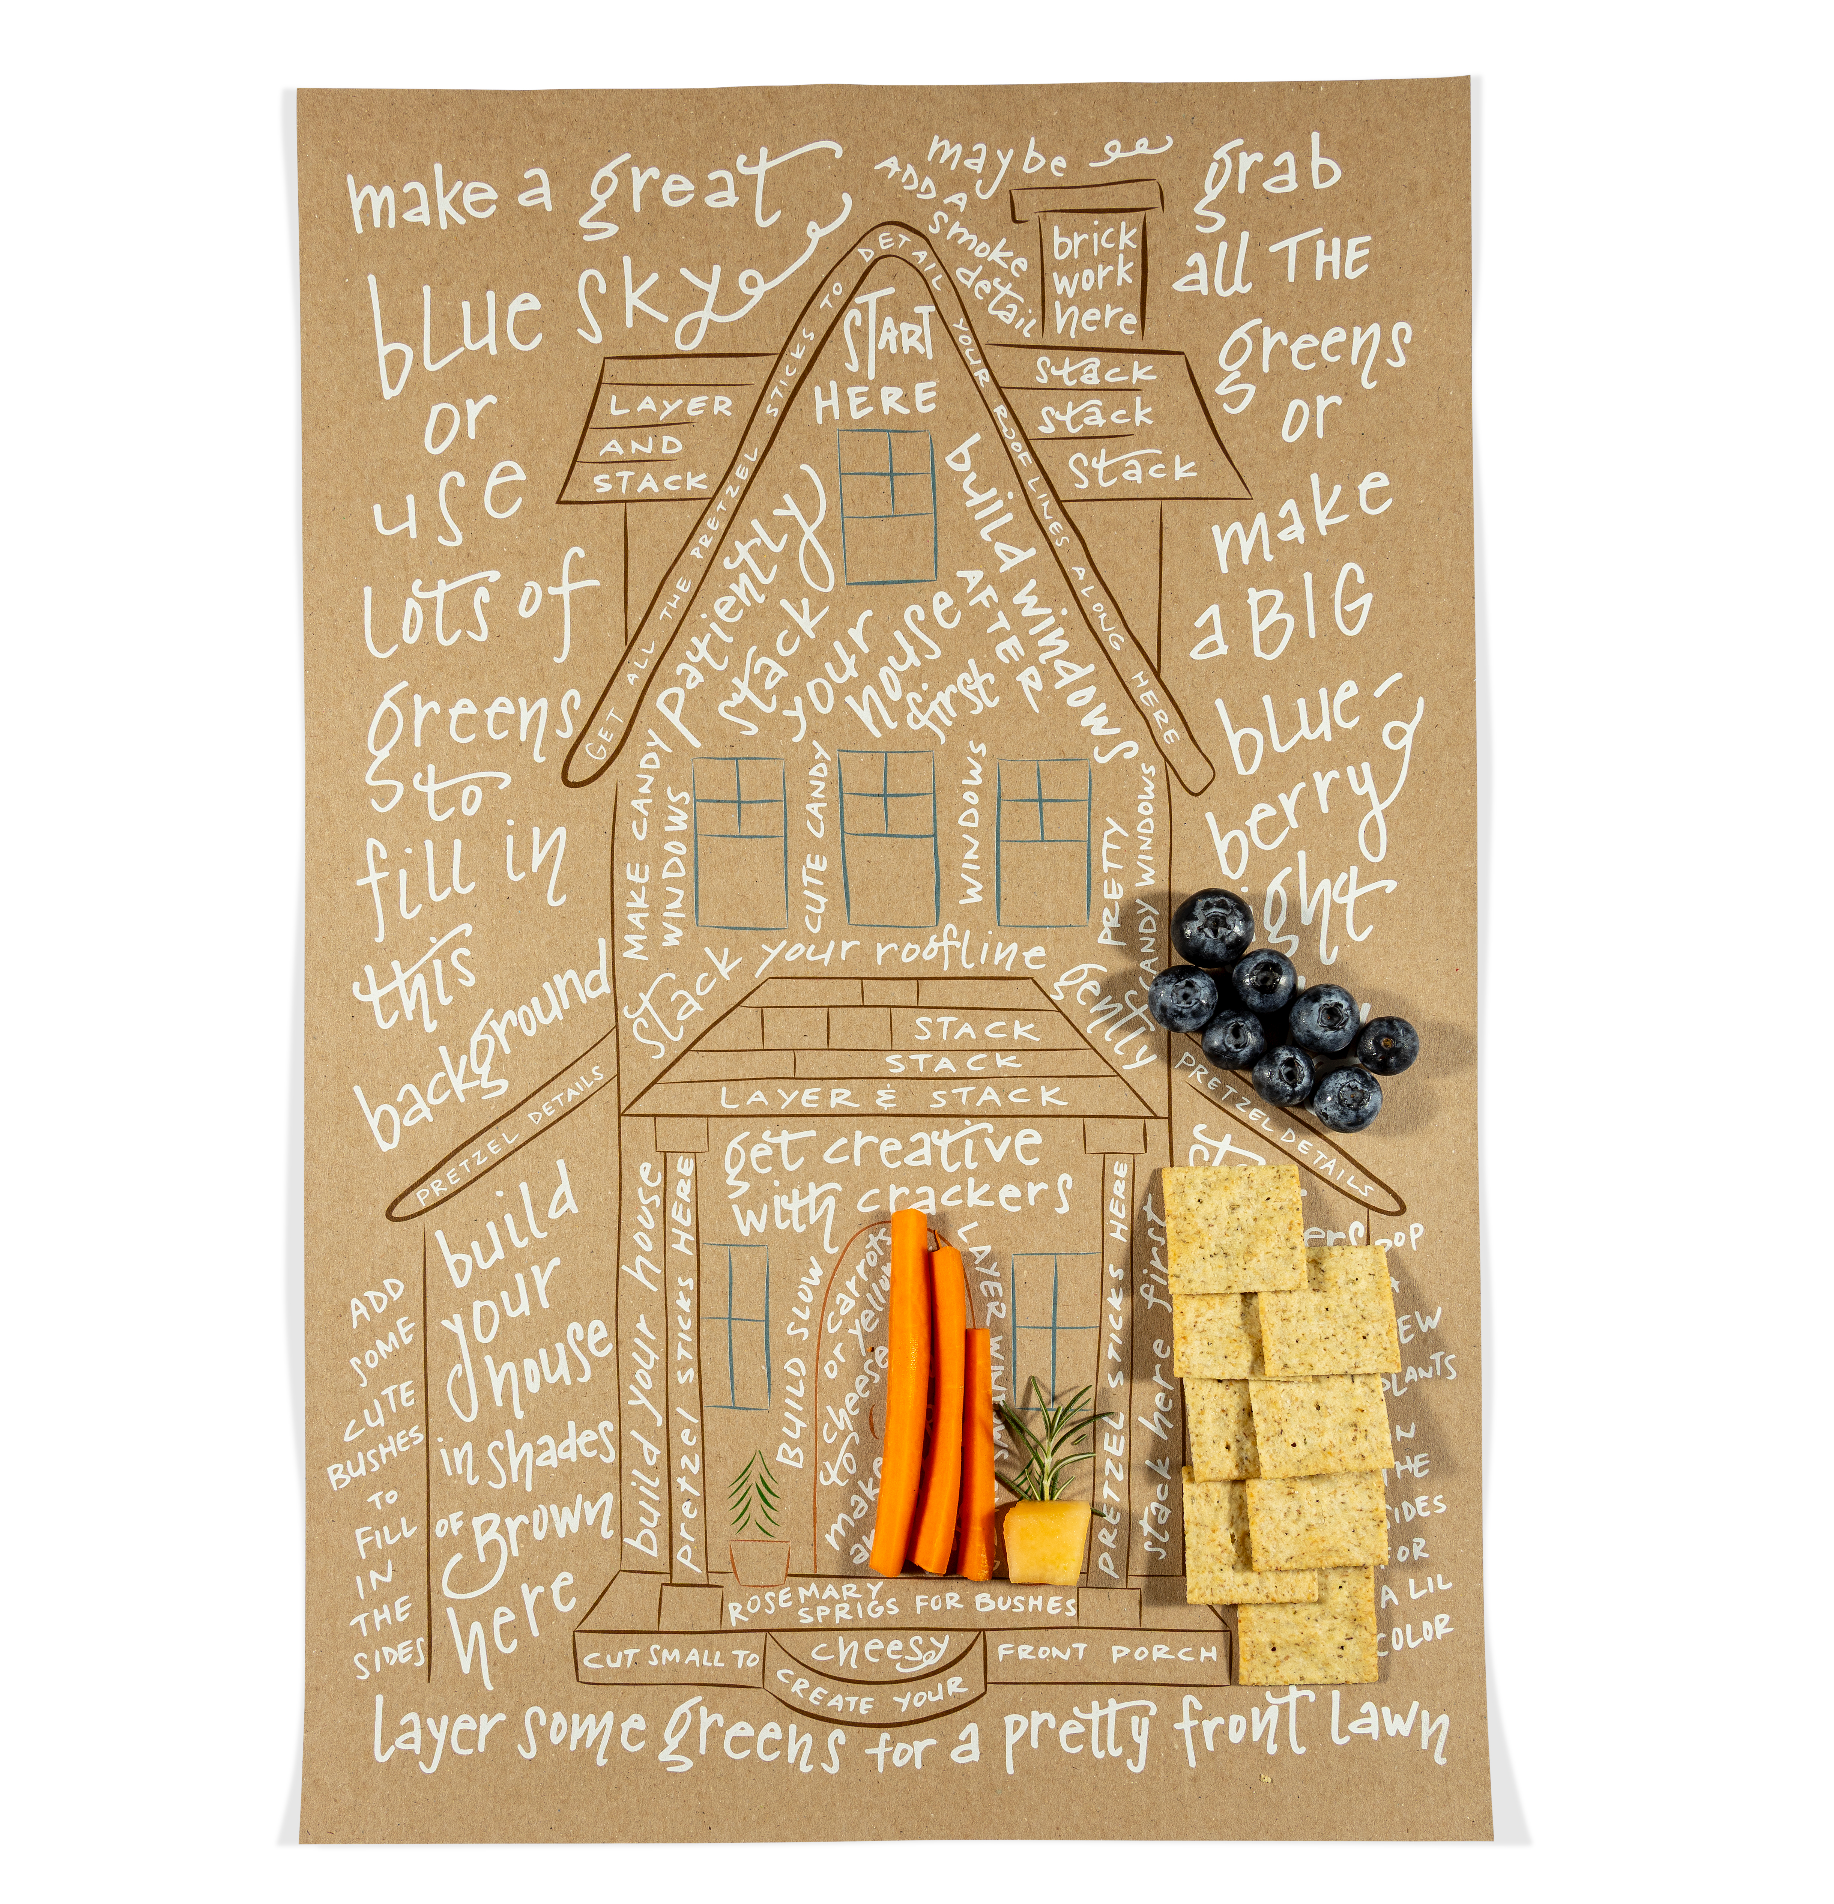 make a great
blue sky
or
use
lots of
greens
to
fill in
this
background
maybe
ADD A
smoke
detail
brick
work
here
grab
all THE
greens
or
make
a BIG
blue-
berry
ight
GET ALL THE PRETZEL STICKS TO DETAIL YOUR ROOF LINES ALONG HERE
START
HERE
LAYER
AND
STACK
stack
stack
stack
patiently
stack
your
house
first
build windows
AFTER
MAKE CANDY
WINDOWS
CUTE CANDY
WINDOWS
PRETTY
CANDY WINDOWS
stack your roofline gently
STACK
STACK
LAYER & STACK
PRETZEL DETAILS
PRETZEL DETAILS
get creative
with crackers
build
your
house
in shades
OF Brown
here
ADD
SOME
CUTE
BUSHES
TO
FILL
IN
THE
SIDES
build your house
pretzel STICKS HERE
BUILD SLOW
or carrots
& cheese or yellow
make
LAYER
PRETZEL STICKS HERE
stack here first
POP
EW
PLANTS
IN
THE
SIDES
FOR
A LIL
COLOR
ROSEMARY
SPRIGS FOR BUSHES
CUT SMALL TO
cheesy
CREATE YOUR
FRONT PORCH
layer some greens for a pretty front lawn